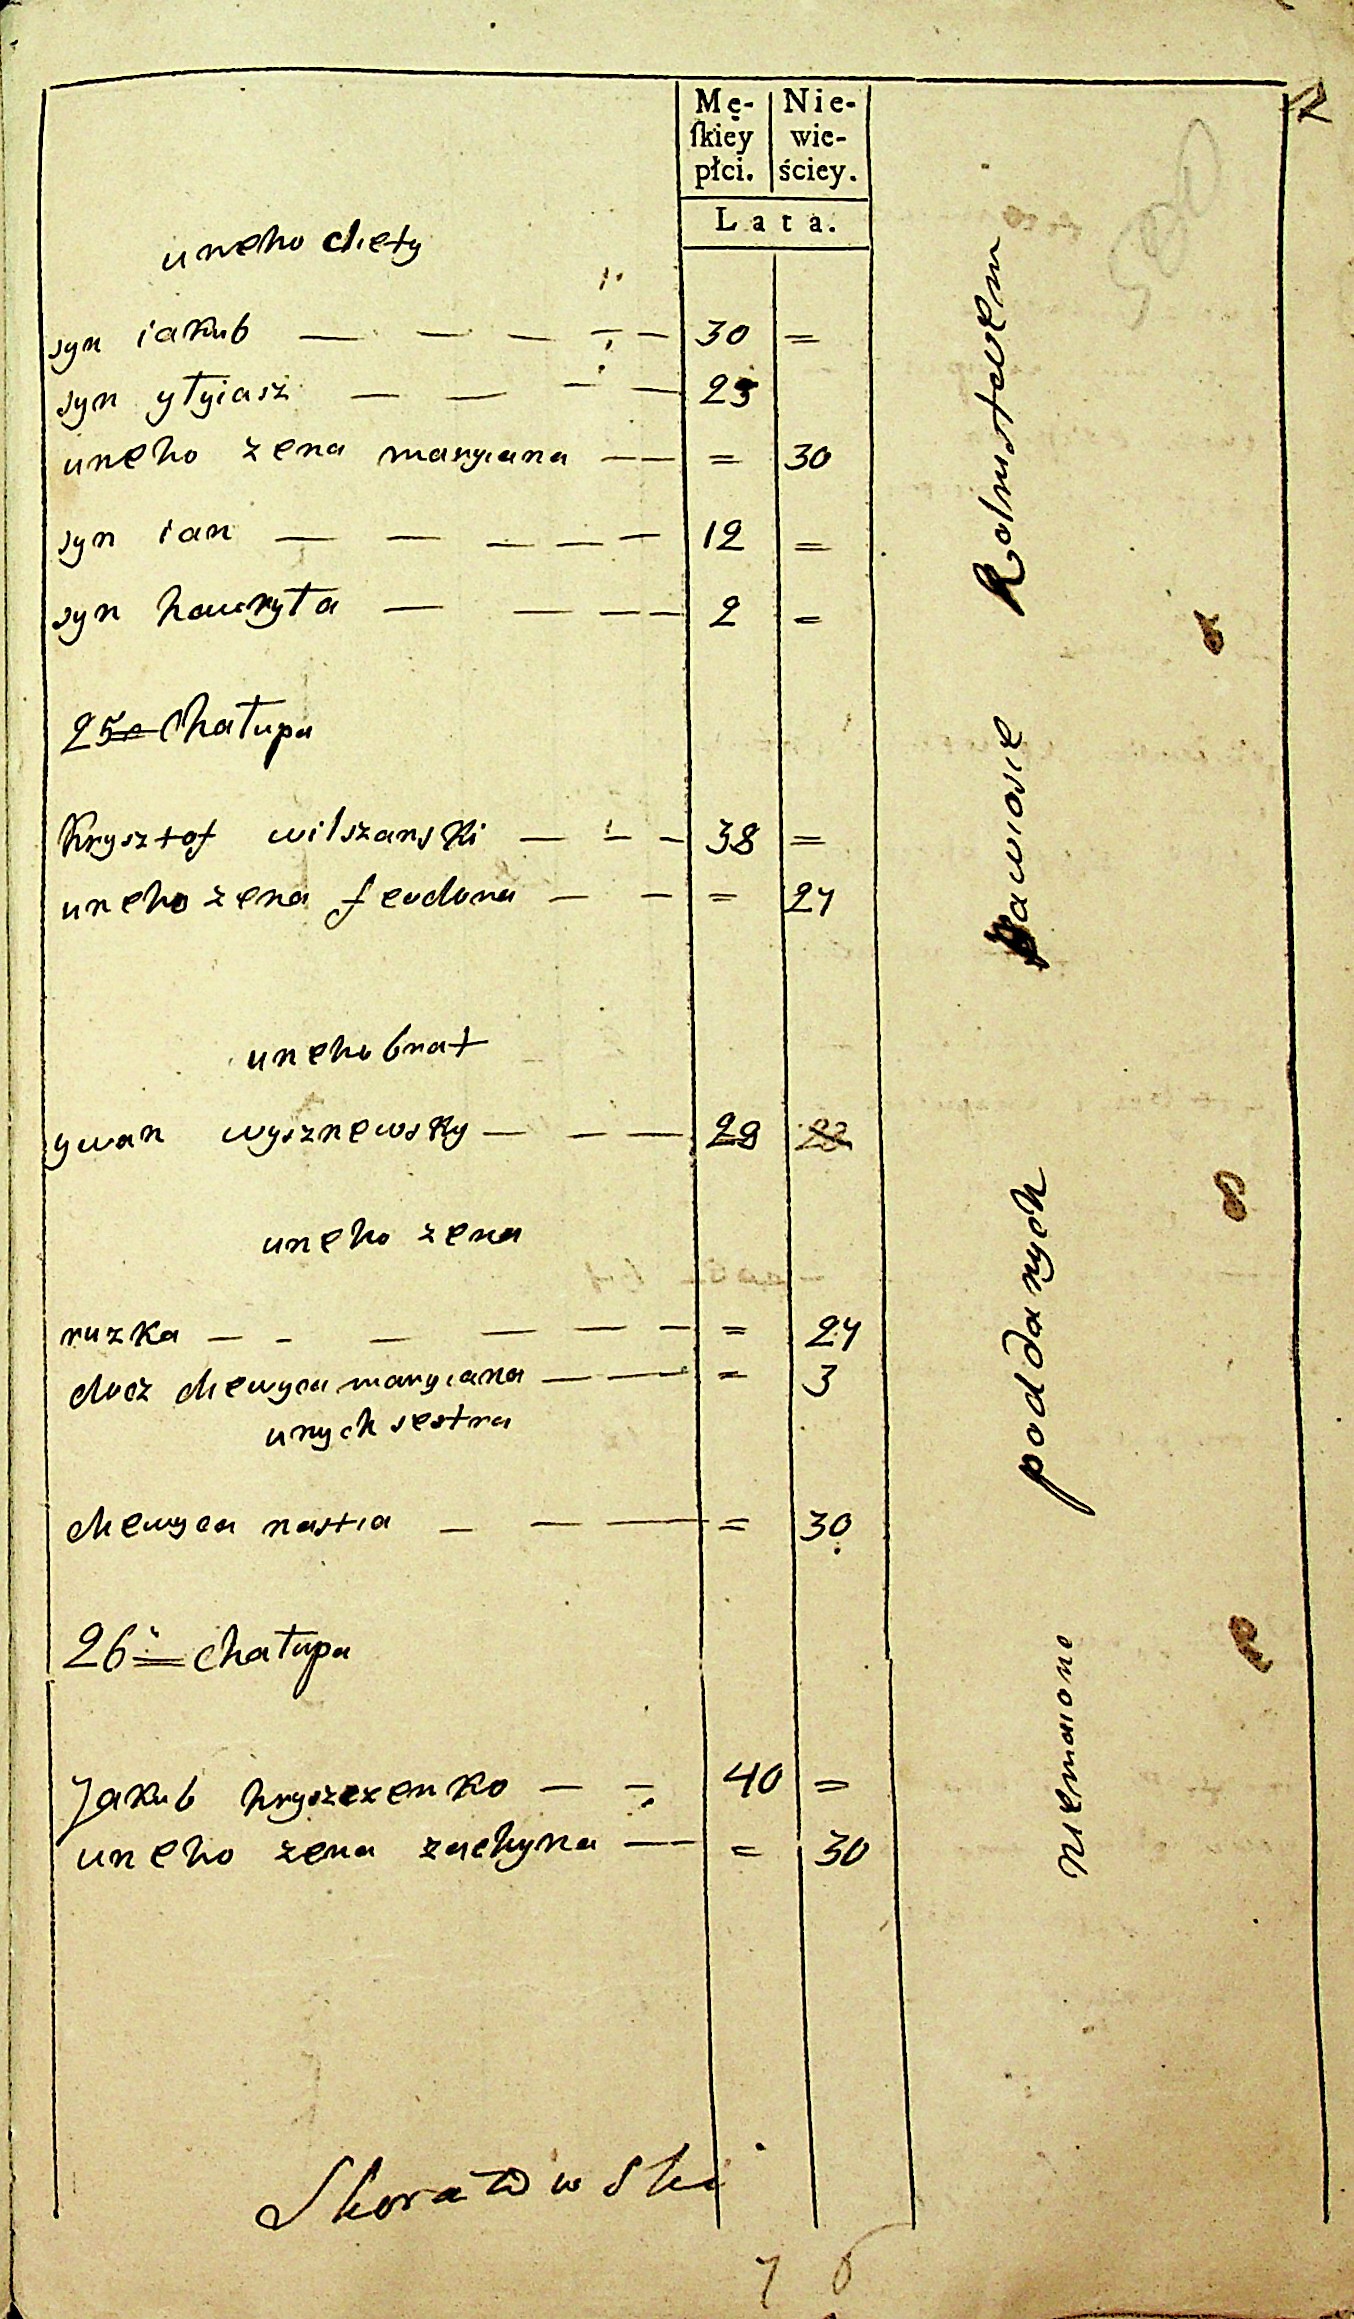 Mę-
ſkiey
płci.
Nie-
wie-
ściey.
Lata.
uneho diety
syn iakub — — — — — 30 =
syn yłyiasz — — — — 25
uneho zena maryiana — — = 30
syn ian — — — — — 12 =
syn hawryła — — — — 2 =
25a Chałupa
Krysztof wilszanski — — — 38 =
uneho zena fewdona — — = 24
uneho brat
ywan wysznewsky — — — 29 28
uneho zena
ruzka — — — — — — = 24
docz diewyca maryiana — — = 3
unych sestra
diewyca nastia — — — = 30
26a Chałupa
Jakub hryszczenko — — 40 =
uneho zena zachyna — — = 30
Skoratowski
7 6
niemaiono poddanych